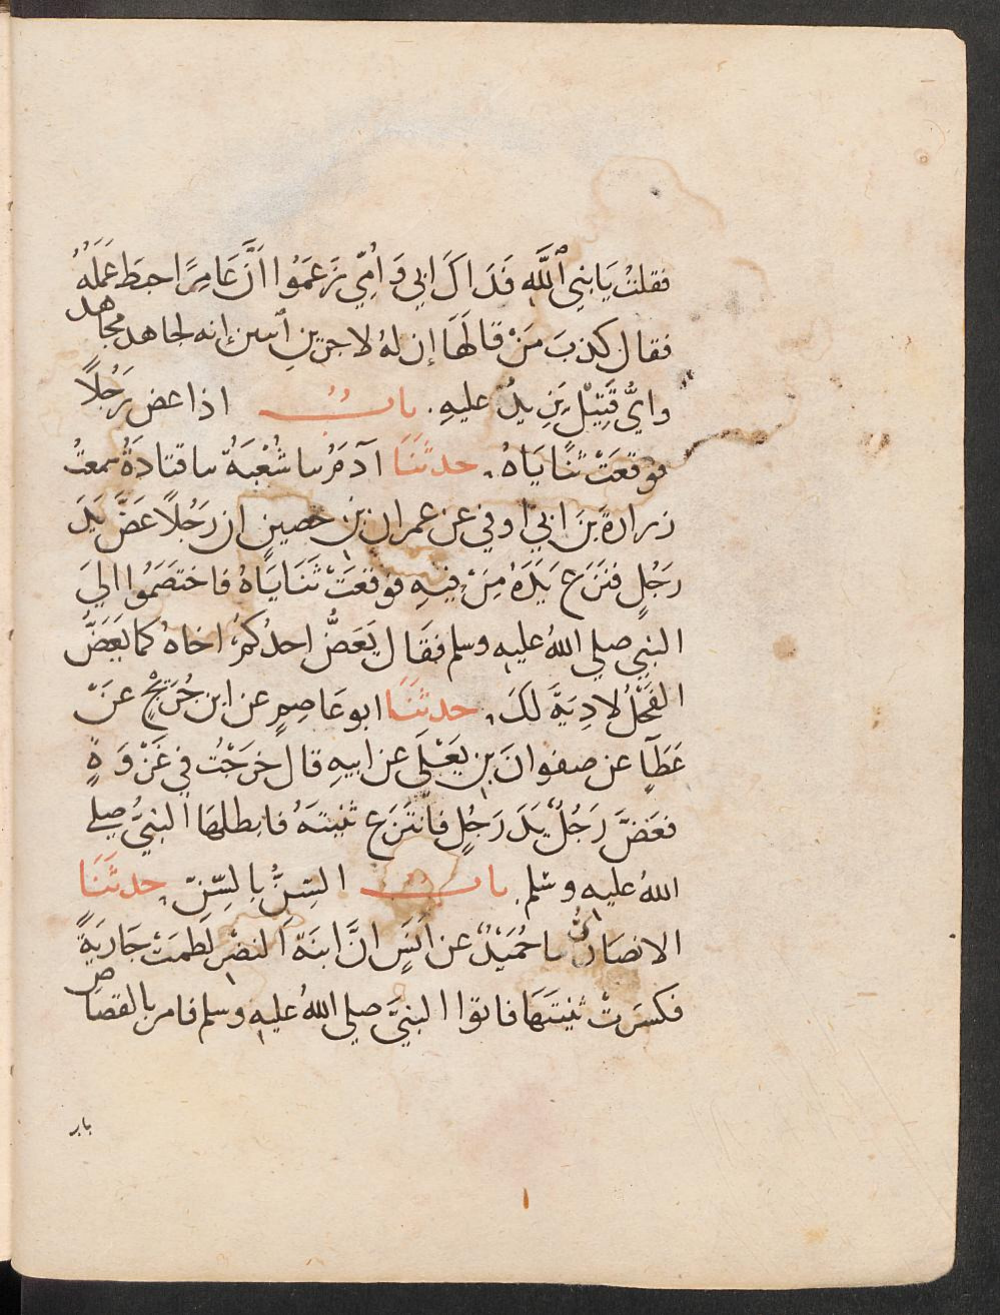 فقلتُ يَا نبيَّ ٱللَّهِ فَدَاكَ ابي وَ اُمِّي زَعَمُوا اَنَّ عَامِرًا حبطَ عَمَلَهُ
فقال كذبَ مَنْ قالهَا إن لهُ لاجرينِ اثنين إنه لجاهد مجاهد
وايُّ قَتِيْلٍ يَزِيدُ عليهِ. بابُ اذا عض رَجُلًا
فوقعَتْ ثنَايَاهُ. حدثَنَا آدمُ سا شُعْبَةُ سا قتادَةُ سمعتُ
زرارةَ بنَ ابيْ اوفي عن عمران بْنِ حصينٍ ان رَجُلًا عَضَّ يَدَ
رَجُلٍ فنَزَعَ يَدَهُ مِنْ فِيْهِ فوقعَتْ ثَنَايَاهُ فاختَصَمُوا اليَ
النبي صلي اللهُ عليهِ وسلم فقَال يَعَضُّ احدُكمُ اخاهُ كما يَعَضُّ
الفَحْلُ لادِيَةَ لكَ. حدثَنَا ابو عَاصِمٍ عن ابن جُرَيْجٍ عَنْ
عَطآءٍ عن صفوانَ بنِ يَعْلَي عن ابيهِ قال خرَجْتُ في غَزْوَةٍ
فعَضَّ رَجُلٌ يَدَ رَجُلٍ فانْتَزَعَ ثنيتَهُ فابطلهَا النبيُّ صلي
اللهُ عليهِ وسَلم. بابُ السِّنُّ بالسِّنِّ. حدثَنَا
الانصَاريُّ سا حُمَيْدٌ عن اَنَسٍ انَّ ابنَةَ النضْرِ لَطمَتْ جَاريَةً
فكسَرَتْ ثنيتَهَا فاتوا النبيَّ صلي اللهُ عليهِ وسلم فامر بالقصاصِ
باب